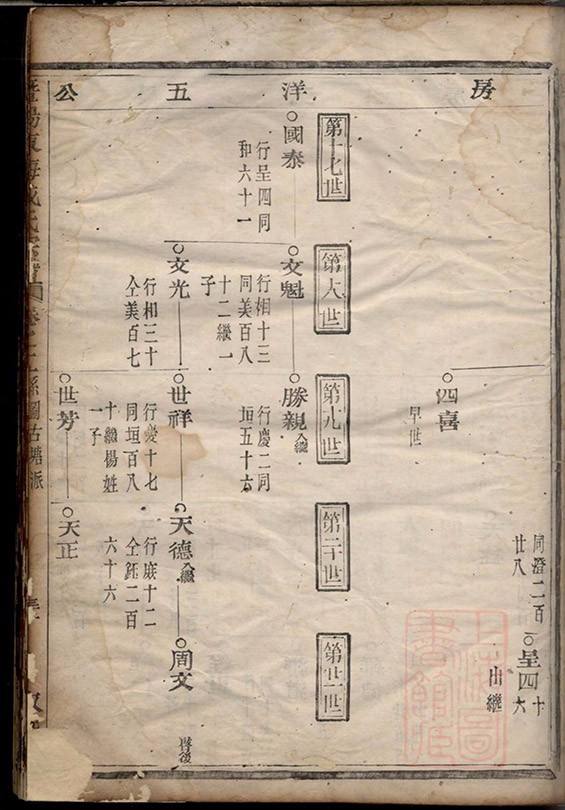 房
洋
五
公
同澄二百
廿八
呈四十
六
出繼
四喜
早世
第十七世
第大世
第九世
第二十世
第廿一世
國泰
行呈四同
和六十一
文魁
行相十三
同美百八
十二繼一
子
勝親
入繼
行慶二同
垣五十六
文光
行相三十
仝美百七
世祥
行慶十七
同垣百八
十繼楊姓
一子
天德
入繼
行庭十二
仝鈺二百
六十六
周文
啓後
世芳
天正
系圖古塘派